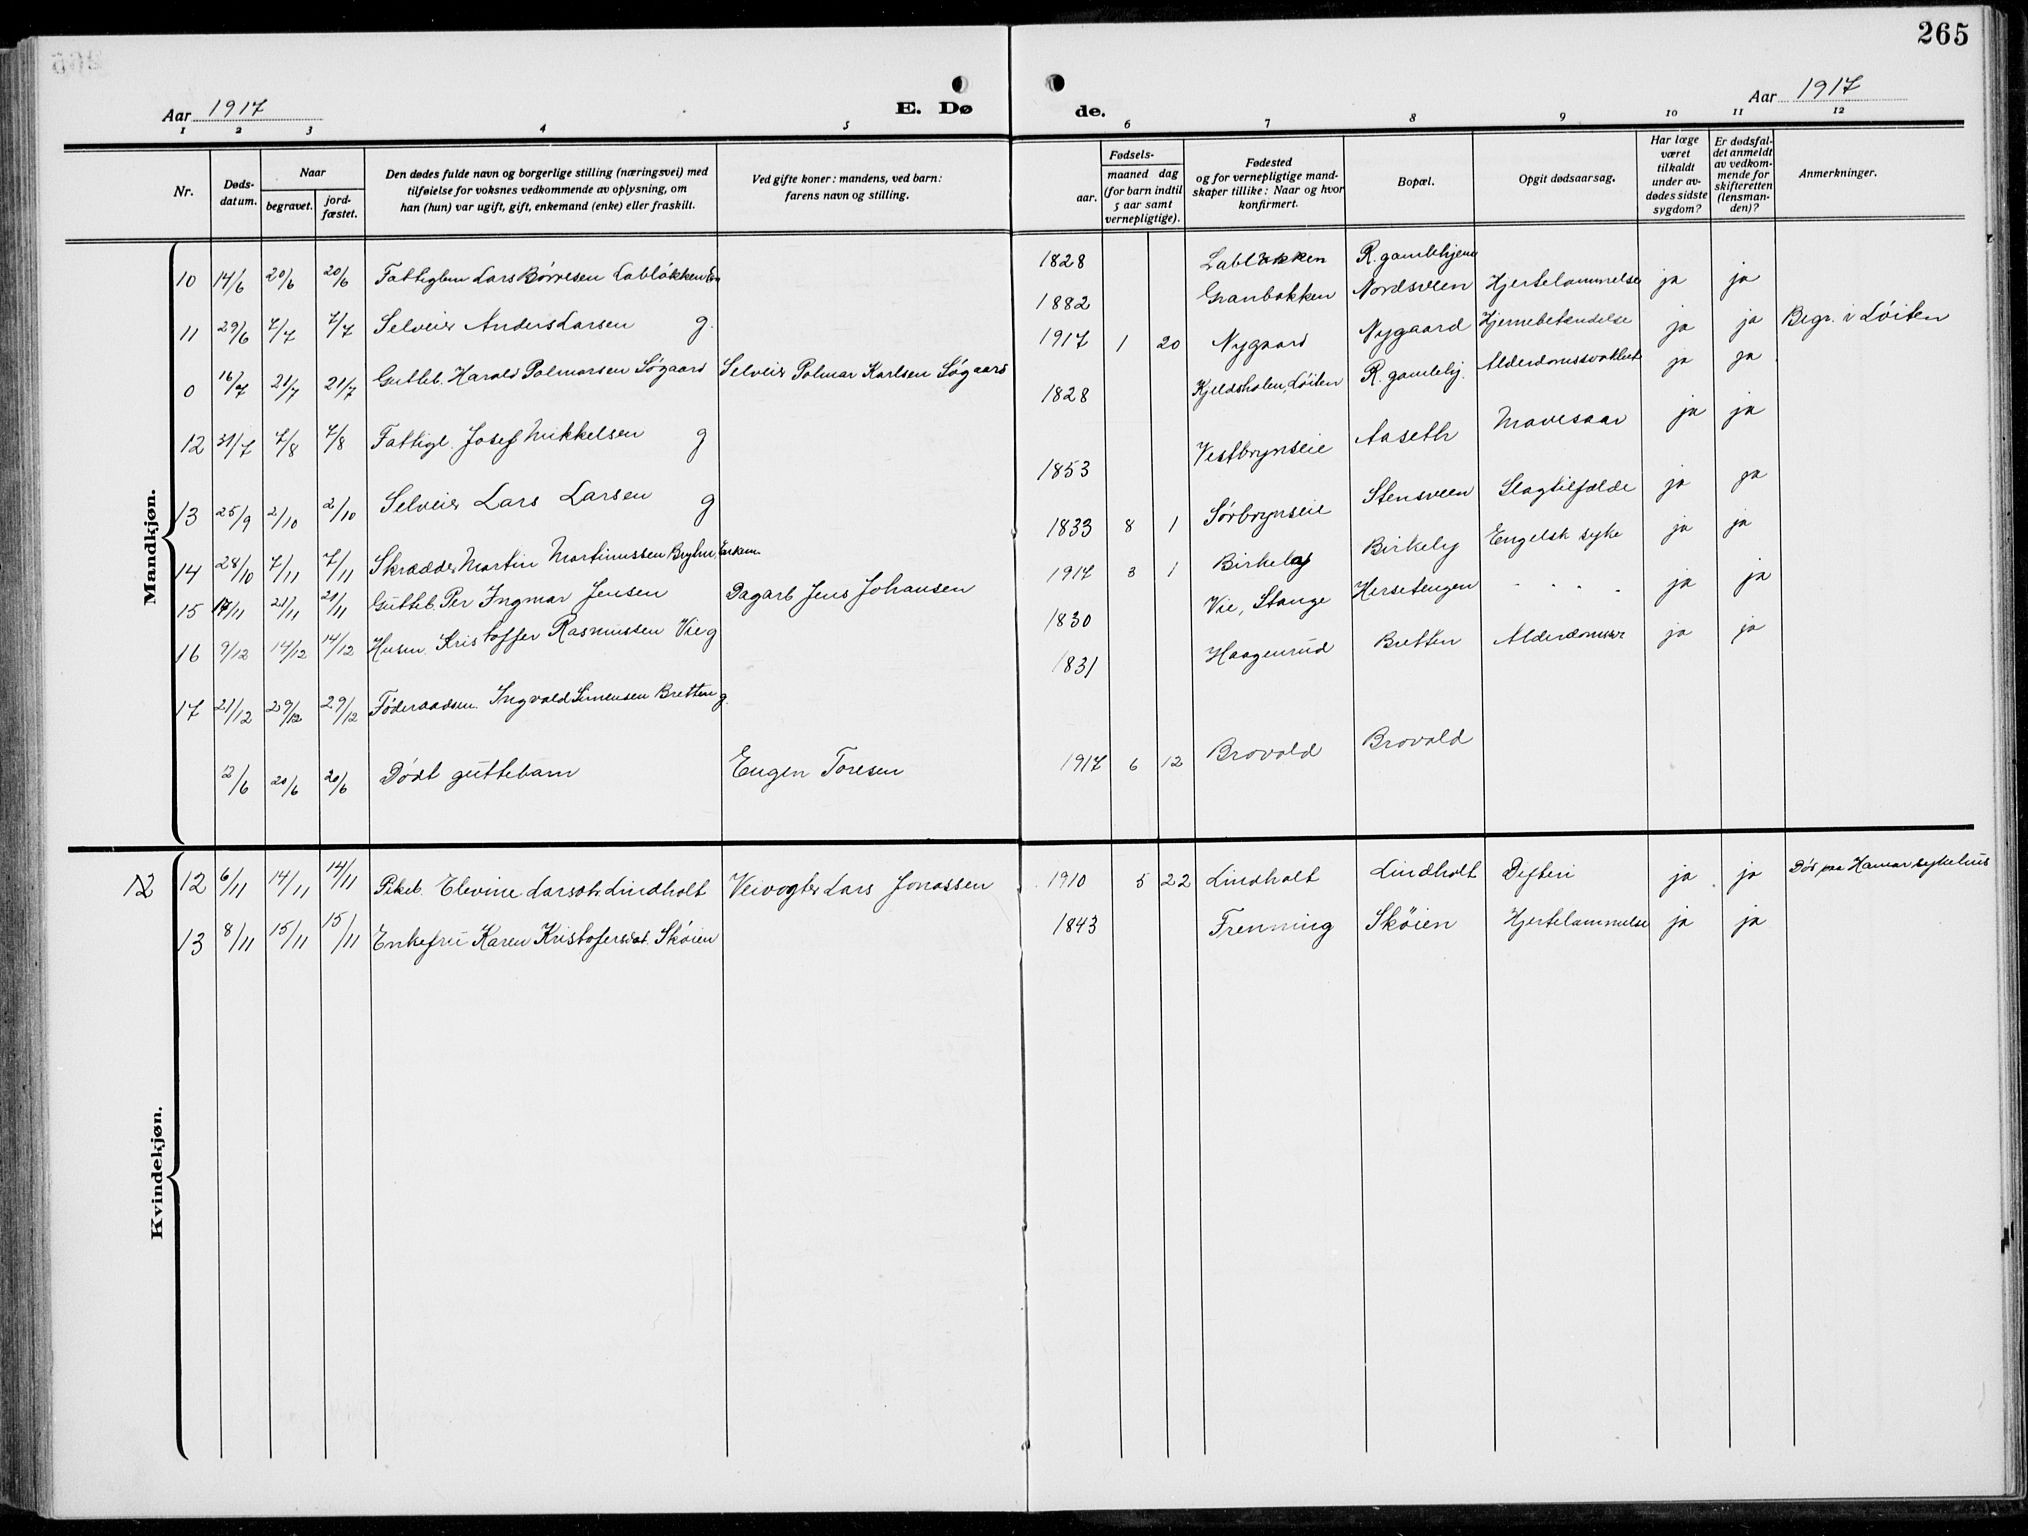 265
Aar 1917
E. Dø de.
Aar 1917
1 2 3 4 5 6 7 8 9 10 11 12
Nr.
Døds-
datum.
Naar
begravet.
jord-
fæstet.
Den dødes fulde navn og borgerlige stilling (næringsvei) med
tilføielse for voksnes vedkommende av oplysning, om
han (hun) var ugift, gift, enkemand (enke) eller fraskilt.
Ved gifte koner: mandens, ved barn:
farens navn og stilling.
aar.
Fødsels-
maaned dag
(for barn indtil
5 aar samt
vernepligtige).
Fødested
og for vernepligtige mand-
skaper tillike: Naar og hvor
konfirmert.
Bopæl.
Opgit dødsaarsag.
Har læge
været
tilkaldt
under av-
dødes sidste
sygdom?
Er dødsfal-
det anmeldt
av vedkom-
mende for
skifteretten
(lensman-
den)?
Anmerkninger.
Mandkjøn.
10 14/6 20/6 20/6 Fattiglem Lars Børresen Labløkken Em 1828 Labløkken R. gamlehjem
11 29/6 7/7 7/7 Selveier Anders Larsen g. 1882 Granbakken Nordsveen Hjertelammelse ja ja
0 16/7 21/7 21/7 Gutteb. Harald Palmarsen Søgaard Selveier Palmar Karlsen Søgaard 1917 1 20 Nygaard Nygaard Hjernebetændelse ja ja Begr. i Løiten
12 31/7 7/8 7/8 Fattigl. Josef Mikkelsen g 1828 Kjeldsholen, Løiten R. gamlehj. Alderdomssvakhet ja ja
13 25/9 2/10 2/10 Selveier Lars Larsen g 1853 Vestbrynseie Aaseth Mavesaar ja ja
14 28/10 7/11 7/11 Skrædder Martin Martinussen Bryhn, Enkem. 1833 8 1 Sørbrynseie Stensveen Slagtilfælde ja ja
15 17/11 21/11 21/11 Gutteb. Per Ingmar Jensen Dagarb Jens Johansen 1917 3 1 Birkely Birkely Engelsk syke ja ja
16 9/12 14/12 14/12 Husm. Kristoffer Rasmussen Vie g 1830 Vie, Stange Hersetengen " " " ja ja
17 21/12 29/12 29/12 Føderaadsm. Ingvald Simensen Bretten g. 1831 Haagenrud Bretten Alderdomssv ja ja
12/6 20/6 20/6 Dødf guttebarn Eugen Toresen 1917 6 12 Brovold Brovold
Kvindekjøn.
12 12 6/11 14/11 14/11 Pikeb. Elevine Larsdtr. Lindholt Veivogter Lars Jonassen 1910 5 22 Lindholt Lindholt Difteri ja ja Død paa Hamar sykehus
13 8/11 15/11 15/11 Enkefru Karen Kristofersdat. Skøien 1843 Frenning Skøien Hjertelammelse ja ja